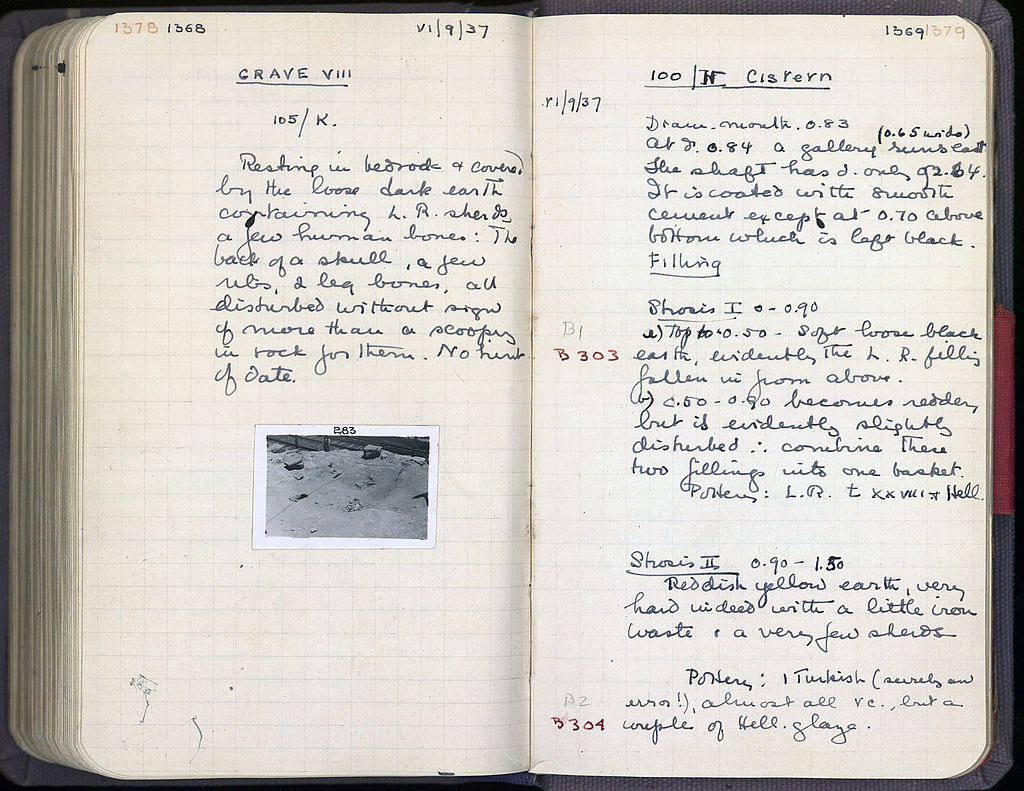 1378 1368
VI/9/37
GRAVE VIII
105/K.
Resting in bedrock & covered
by the loose dark earth
containing L. R. sherds,
a few human bones: The
back of a skull, a few
ribs, 2 leg bones, all
disturbed without sign
of more than a scooping
in rock for them. No hint
of date.
283
1369 1379
100/H Cistern
VI/9/37
Diam. mouth. 0.83
(0.65 wide)
At d. 0.84 a gallery runs east
The shaft has d. only of 2.64.
It is coated with smooth
cement except at 0.70 above
bottom which is left black.
Filling
Strosis I 0 - 0.90
B1
a) Top to -0.50 - Soft loose black
B 303
earth, evidently the L. R. filling
fallen in from above.
b) c.50 - 0.90 becomes redder,
but is evidently slightly
disturbed ∴ combine these
two fillings into one basket.
Pottery: L.R. t XXVIII + Hell.
Strosis II 0.90 - 1.50
Reddish yellow earth, very
hard indeed with a little iron
waste & a very few sherds
Pottery: 1 Turkish (surely an
B2
error!), almost all vc., but a
B 304
couple of Hell. glaze.